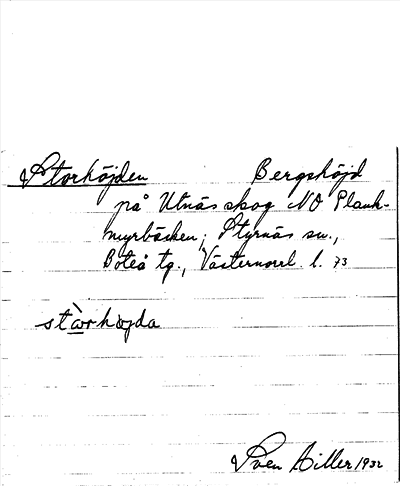 Storhöjden Bergshöjd
på Utnäs skog NO Plank-
myrbäcken; Styrnäs sn.,
Boteå tg., Västernorrl. l. 73
stòrhöjda
Sven Hiller 1932